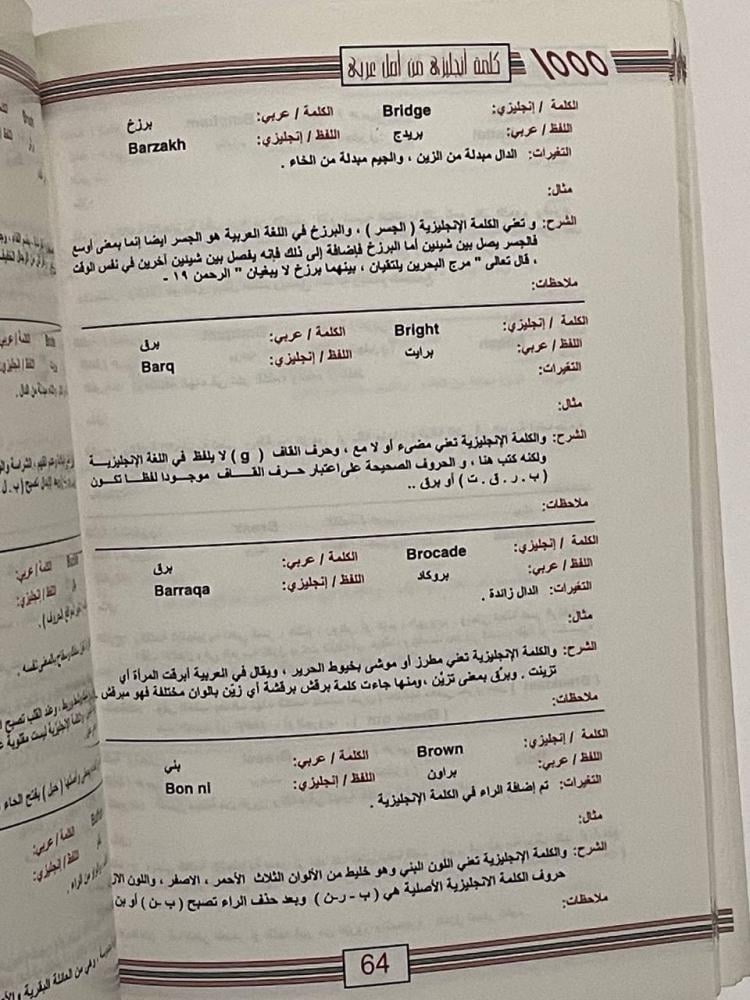 ١٠٠٠ كلمة أنجليزى من أصل عربى
الكلمة / إنجليزي: Bridge الكلمة / عربي: برزخ
اللفظ / عربي: بريدج اللفظ / إنجليزي: Barzakh
التغيرات: الدال مبدلة من الزين ، والجيم مبدلة من الخاء .
مثال:
الشرح: و تعني الكلمة الإنجليزية ( الجسر ) ، والبرزخ في اللغة العربية هو الجسر ايضا إنما بمعنى أوسع
فالجسر يصل بين شيئين أما البرزخ فإضافة إلى ذلك فإنه يفصل بين شيئين آخرين في نفس الوقت
، قال تعالى " مرج البحرين يلتقيان ، بينهما برزخ لا يبغيان " الرحمن ١٩ -
ملاحظات:
الكلمة / إنجليزي: Bright الكلمة / عربي: برق
اللفظ / عربي: برايت اللفظ / إنجليزي: Barq
التغيرات:
مثال:
الشرح: والكلمة الإنجليزية تعني مضىء أو لا مع ، وحرف القاف ( g ) لا يلفظ في اللغة الإنجليزية
ولكنه كتب هنا ، و الحروف الصحيحة على اعتبار حرف القاف موجودا لفظا تكون
( ب . ر . ق . ت ) أو برق ..
ملاحظات:
الكلمة / إنجليزي: Brocade الكلمة / عربي: برق
اللفظ / عربي: بروكاد اللفظ / إنجليزي: Barraqa
التغيرات: الدال زائدة .
مثال:
الشرح: والكلمة الإنجليزية تعني مطرز أو موشى بخيوط الحرير ، ويقال في العربية أبرقت المرأة أي
تزينت . وبرّق بمعنى تزيّن ، ومنها جاءت كلمة برقش برقشة أي زيّن بالوان مختلفة فهو مبرقش .
ملاحظات:
الكلمة / إنجليزي: Brown الكلمة / عربي: بني
اللفظ / عربي: براون اللفظ / إنجليزي: Bon ni
التغيرات: تم إضافة الراء في الكلمة الإنجليزية .
مثال:
الشرح: والكلمة الإنجليزية تعني اللون البني وهو خليط من الألوان الثلاث الأحمر ، الاصفر ، واللون الأز
حروف الكلمة الانجليزية الأصلية هي ( ب - ر-ن ) وبعد حذف الراء تصبح ( ب -ن ) أو بن
ملاحظات:
64